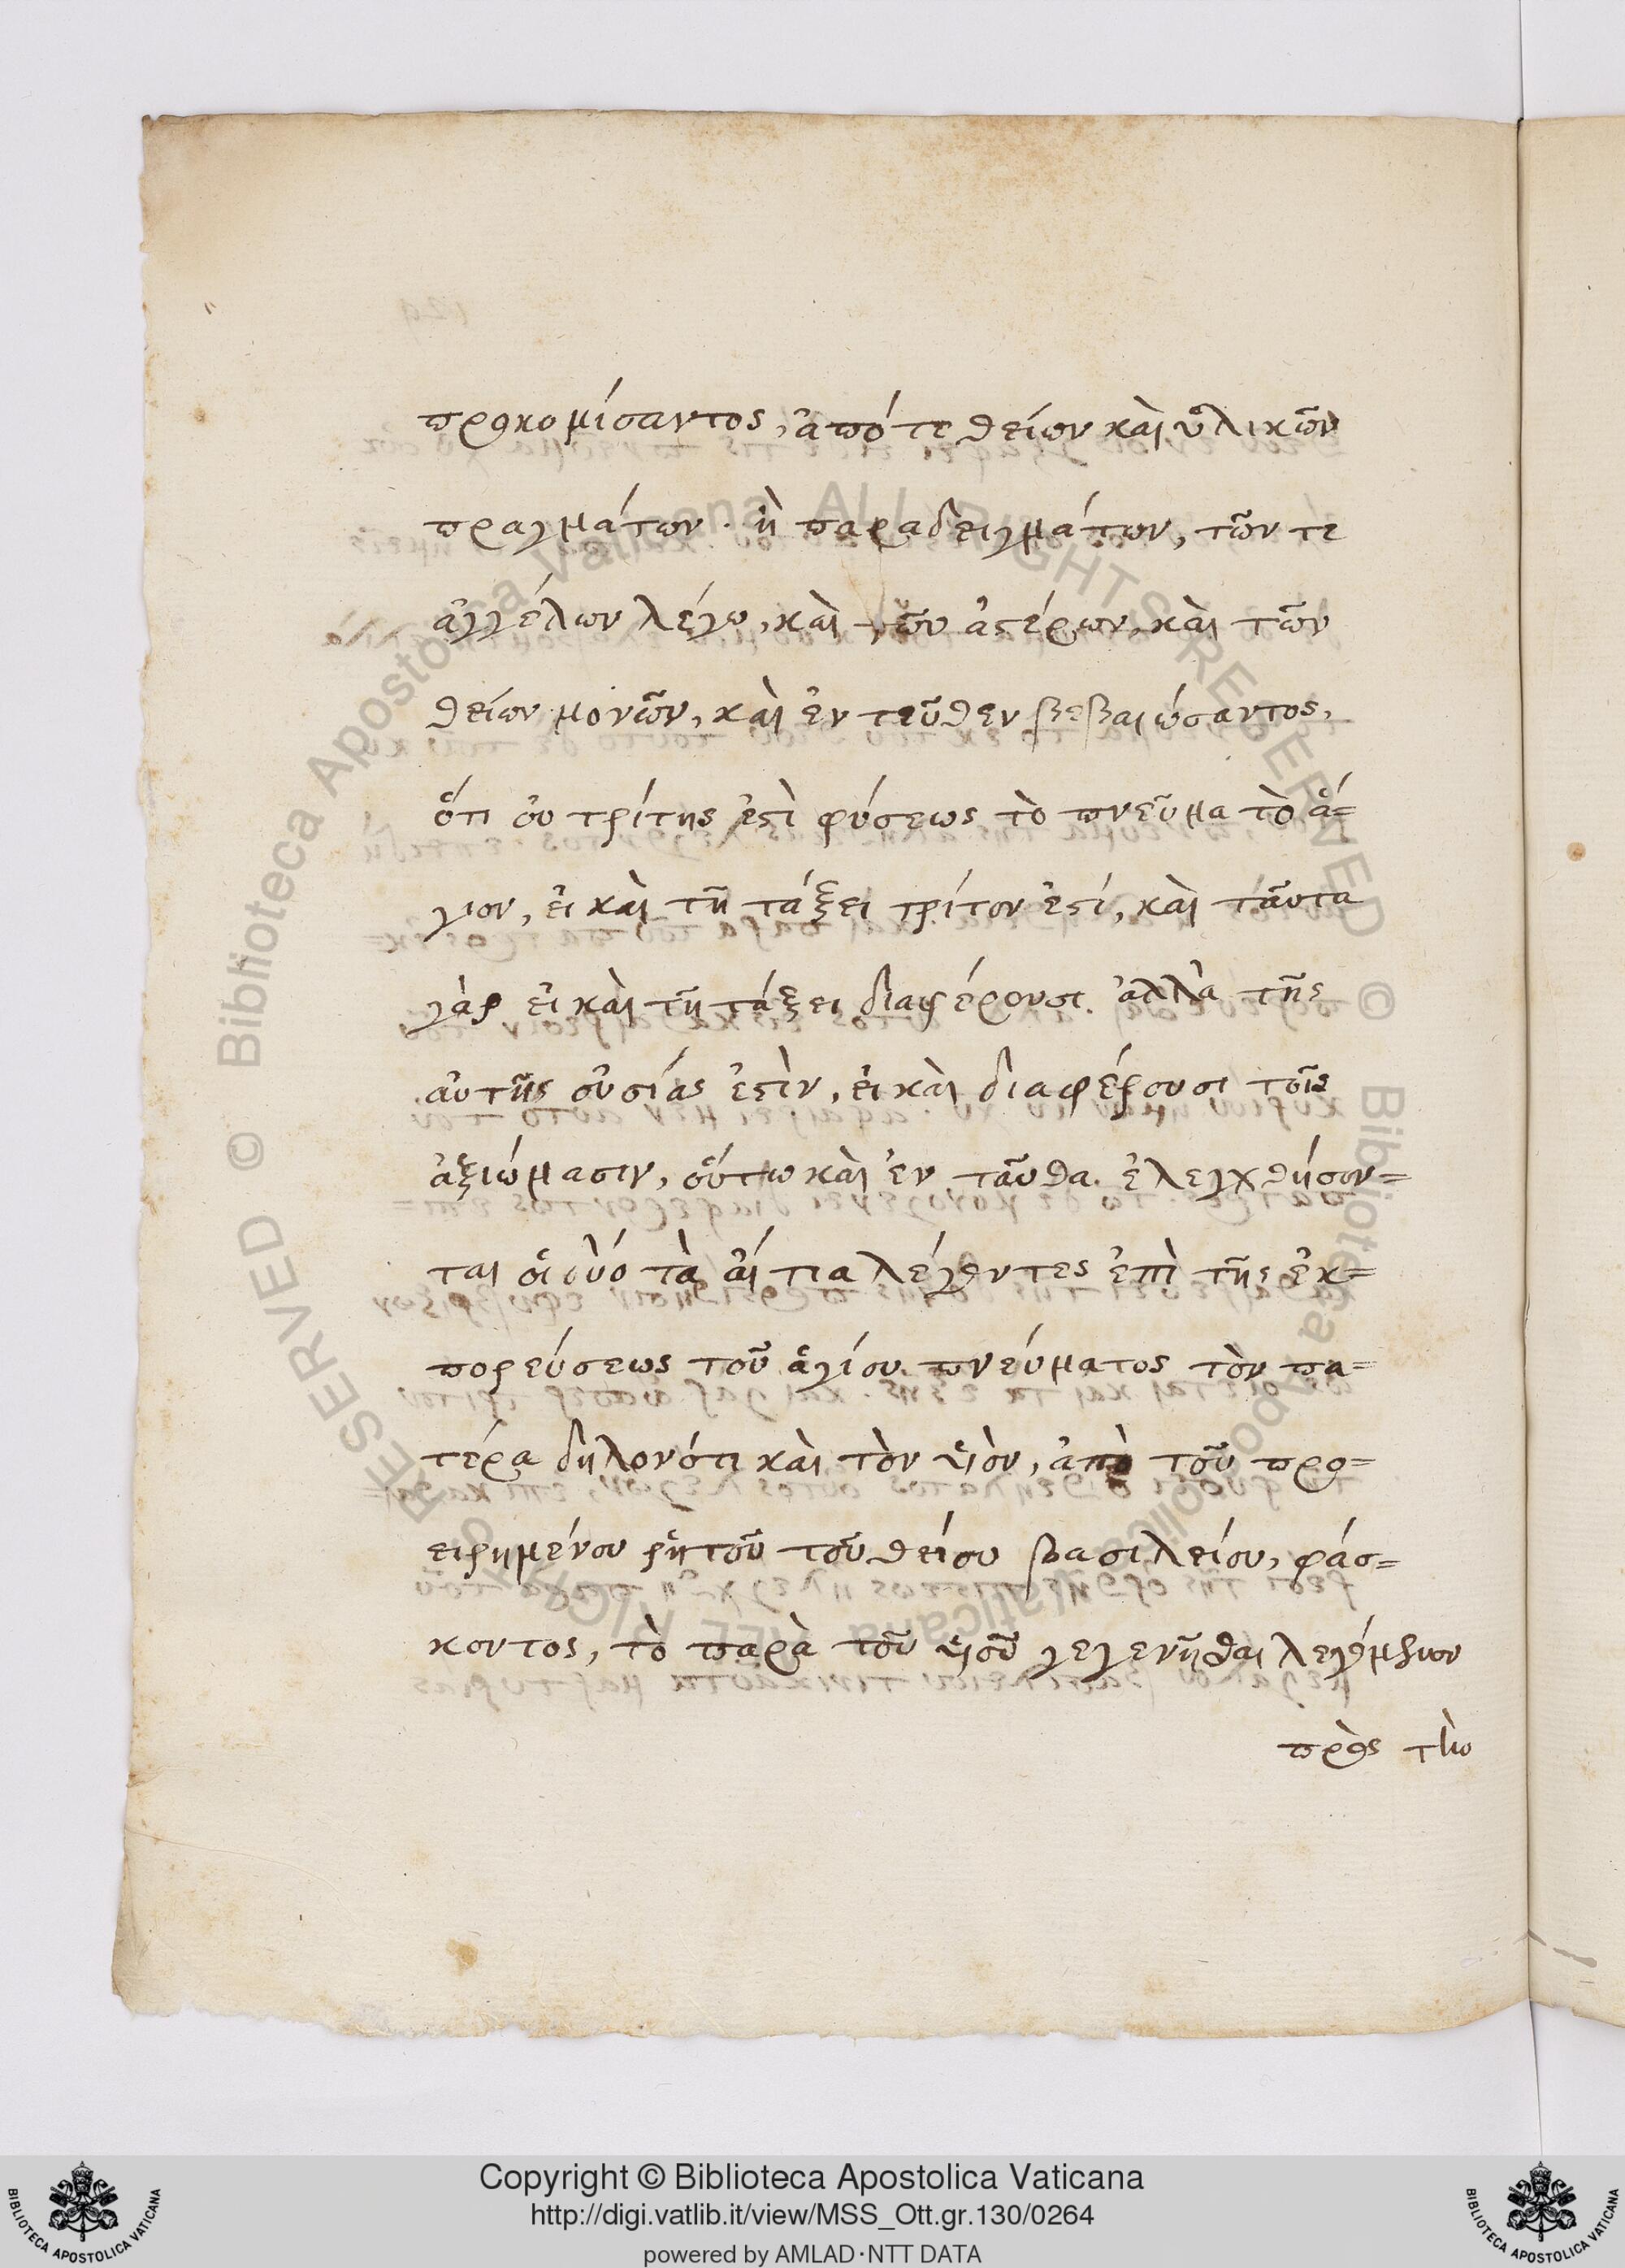 προκομίσαντος, ἀπό τε θείων καὶ ὑλικῶν
πραγμάτων· ἢ παραδειγμάτων, τῶν τε
ἀγγέλων λέγω, καὶ τῶν ἀστέρων, καὶ τῶν
θείων μονῶν, καὶ ἐν τεῦθεν βεβαιώσαντος,
ὅτι οὐ τρίτης ἐστὶ φύσεως τὸ πνεῦμα τὸ ἅ=
γιον, εἰ καὶ τῇ τάξει τρίτον ἐστί, καὶ ταῦτα
γὰρ εἰ καὶ τῇ τάξει διαφέρουσι. ἀλλὰ τῆς
αὐτῆς οὐσίας ἐστὶν, εἰ καὶ διαφέρουσι τοῖς
ἀξιώμασιν, οὕτω καὶ ἐν ταῦθα. ἐλεγχθήσον=
ται οἱ δύο τὰ αἴτια λέγοντες ἐπὶ τῆς ἐκ=
πορεύσεως τοῦ ἁγίου πνεύματος τὸν πα=
τέρα δηλονότι καὶ τὸν υἱὸν, ἀπὸ τοῦ προ=
ειρημένου ῥητοῦ τοῦ θείου βασιλείου, φάσ=
κοντος, τὸ παρὰ τοῦ υἱοῦ γεγενῆσθαι λεγόμενον
πρὸς τὴν
Copyright © Biblioteca Apostolica Vaticana
http://digi.vatlib.it/view/MSS_Ott.gr.130/0264
powered by AMLAD·NTT DATA
BIBLIOTECA APOSTOLICA VATICANA
BIBLIOTECA APOSTOLICA VATICANA
© Biblioteca Apostolica Vaticana ALL RIGHTS RESERVED
© Biblioteca Apostolica Vaticana ALL RIGHTS RESERVED